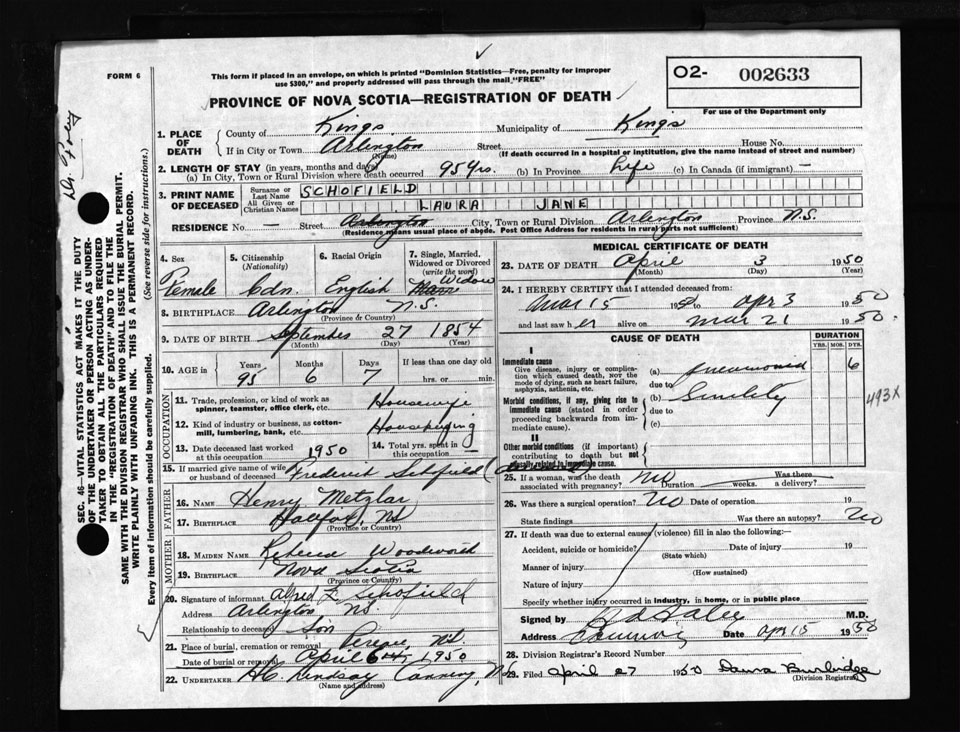 FORM 6
This form if placed in an envelope, on which is printed "Dominion Statistics—Free, penalty for improper
use $300," and properly addressed will pass through the mail "FREE"
O2- 002633
For use of the Department only
PROVINCE OF NOVA SCOTIA—REGISTRATION OF DEATH
1. PLACE OF DEATH
County of Kings Municipality of Kings
If in City or Town Arlington Street House No.
(Name) (If death occurred in a hospital or institution, give the name instead of street and number)
2. LENGTH OF STAY (in years, months and days)
(a) In City, Town or Rural Division where death occurred 95 yrs. (b) In Province Life (c) In Canada (if immigrant) —
3. PRINT NAME OF DECEASED
Surname or Last Name SCHOFIELD
All Given or Christian Names LAURA JANE
RESIDENCE No. — Street Arlington City, Town or Rural Division Arlington Province N.S.
(Residence means usual place of abode. Post Office Address for residents in rural parts not sufficient)
4. Sex Female
5. Citizenship (Nationality) Cdn.
6. Racial Origin English
7. Single, Married, Widowed or Divorced (write the word) Widow
8. BIRTHPLACE Arlington N.S.
(Province or Country)
9. DATE OF BIRTH September 27 1854
(Month) (Day) (Year)
10. AGE in Years 95 Months 6 Days 7 If less than one day old hrs. or min.
OCCUPATION
11. Trade, profession, or kind of work as spinner, teamster, office clerk, etc. Housewife
12. Kind of industry or business, as cotton-mill, lumbering, bank, etc. Housekeeping
13. Date deceased last worked at this occupation 1950
14. Total yrs. spent in this occupation —
15. If married give name of wife or husband of deceased Frederick Schofield
FATHER
16. Name Henry Metzlar
17. Birthplace Halifax, NS
(Province or Country)
MOTHER
18. Maiden Name Rebecca Woodworth
19. Birthplace Nova Scotia
(Province or Country)
20. Signature of informant Alfred E Schofield
Address Arlington NS.
Relationship to deceased Son
21. Place of burial, cremation or removal N.S.
Date of burial or removal April 1950
22. UNDERTAKER H.C. Lindsay Canning, N.S.
(Name and address)
MEDICAL CERTIFICATE OF DEATH
23. DATE OF DEATH April 3 1950
(Month) (Day) (Year)
24. I HEREBY CERTIFY that I attended deceased from:
Mar 15 1950 to Apr 3 1950
and last saw her alive on Mar 21 1950.
CAUSE OF DEATH
DURATION
YRS. MOS. DYS.
I
Immediate cause
Give disease, injury or complication which caused death, not the mode of dying, such as heart failure, asphyxia, asthenia, etc.
(a) pneumonia 6
due to
Morbid conditions, if any, giving rise to immediate cause (stated in order proceeding backwards from immediate cause).
(b) Senility
due to
(c)
493X
II
Other morbid conditions (if important) contributing to death but not causally related to immediate cause.
25. If a woman, was the death associated with pregnancy? No Duration weeks. Was there a delivery?
26. Was there a surgical operation? No Date of operation 19
State findings Was there an autopsy? No
27. If death was due to external causes (violence) fill in also the following:—
Accident, suicide or homicide? Date of injury 19
(State which)
Manner of injury
(How sustained)
Nature of injury
Specify whether injury occurred in industry, in home, or in public place
Signed by M.D.
Address Canning Date Apr 15 1950
28. Division Registrar's Record Number
29. Filed April 27 1950 Burbidge
(Division Registrar)
SEC. 46—VITAL STATISTICS ACT MAKES IT THE DUTY
OF THE UNDERTAKER OR PERSON ACTING AS UNDER-
TAKER TO OBTAIN ALL THE PARTICULARS REQUIRED
IN THE "REGISTRATION OF DEATH" AND TO FILE THE
SAME WITH THE DIVISION REGISTRAR WHO SHALL ISSUE THE BURIAL PERMIT.
WRITE PLAINLY WITH UNFADING INK. THIS IS A PERMANENT RECORD.
Every item of information should be carefully supplied. (See reverse side for instructions.)